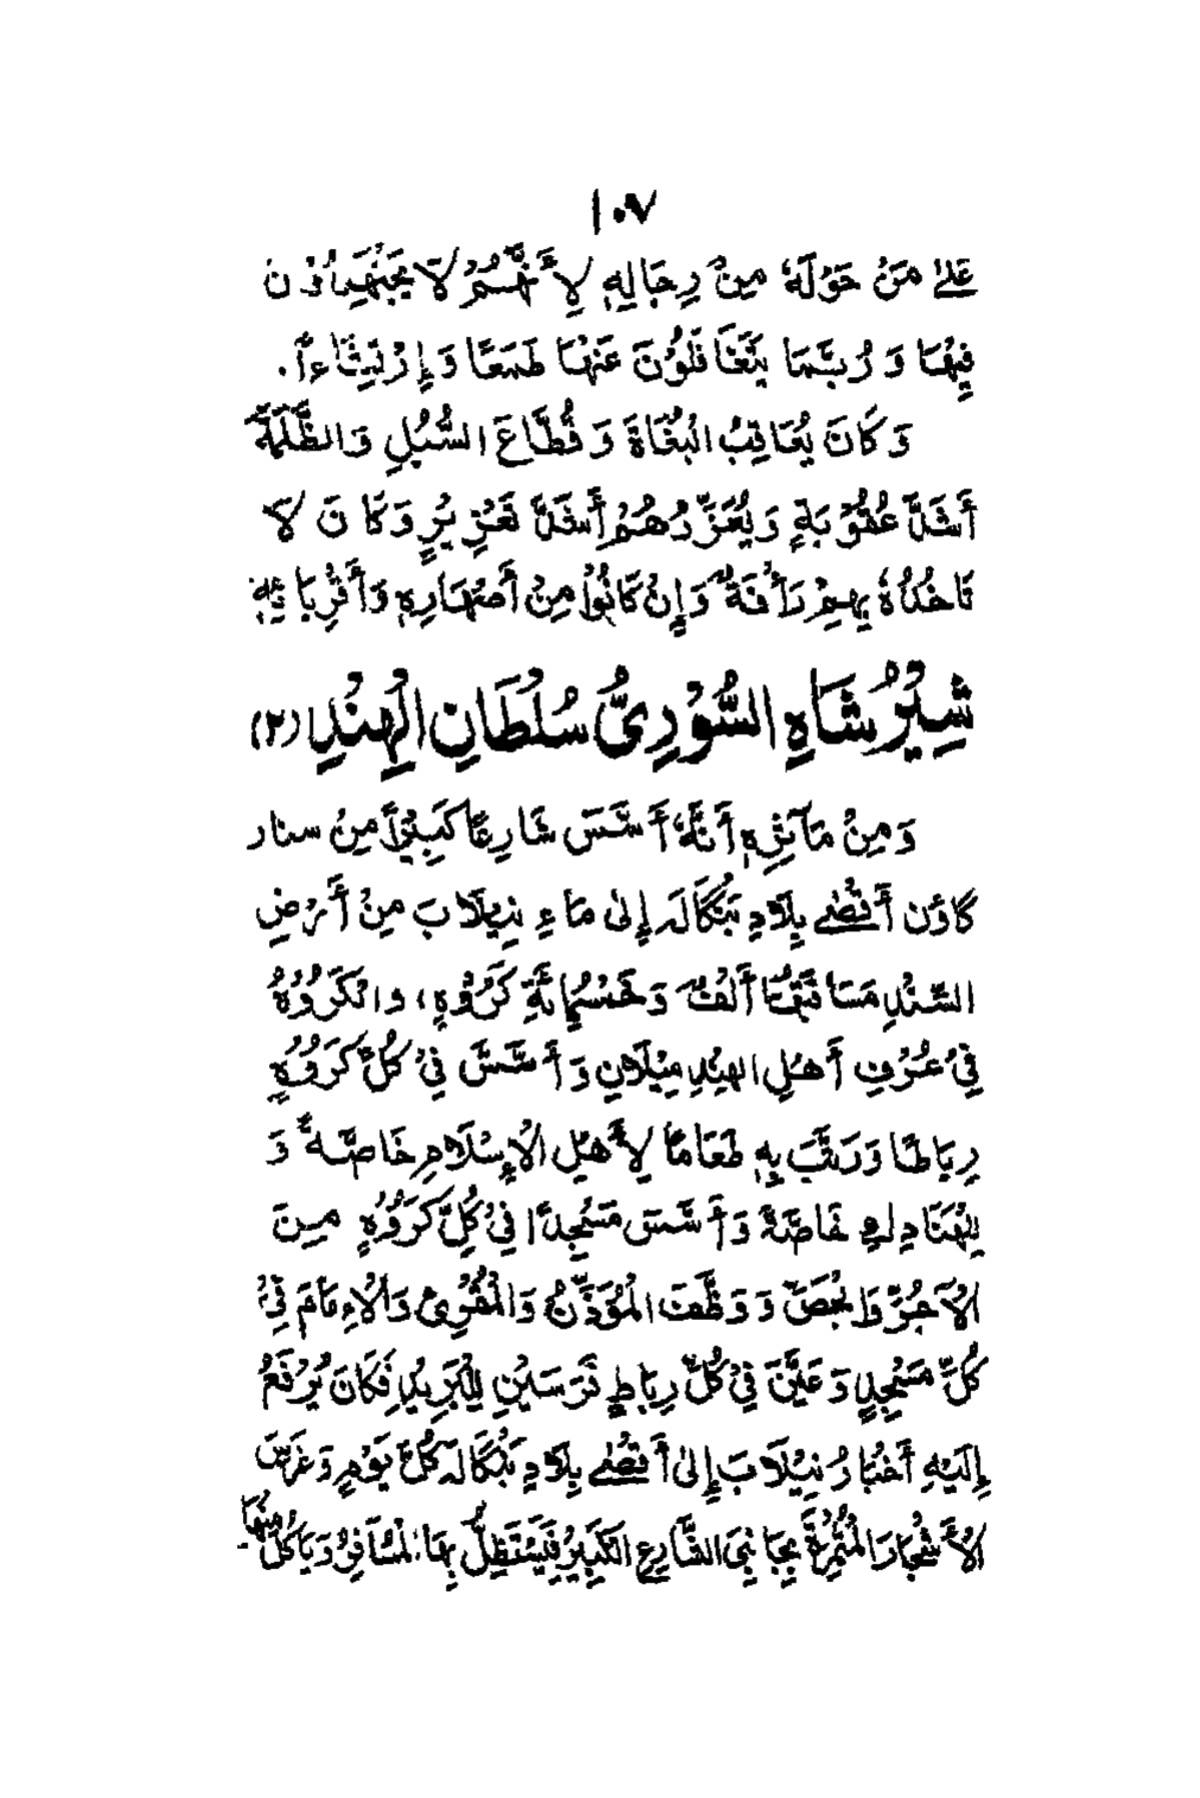 ١٠٧
عَلىٰ مَنْ حَوْلَهٗ مِنْ رِجَالِهٖ لِأَنَّهُمْ لَا يَجْتَهِدُوْنَ
فِيْهَا وَ رُبَّمَا يَتَغَافَلُوْنَ عَنْهَا طَمَعًا وَ إِرْتِشَاءً.
وَ كَانَ يُعَاقِبُ الْبُغَاةَ وَ قُطَّاعَ السُّبُلِ وَالظَّلَمَةَ
أَشَدَّ عُقُوْبَةٍ وَ يُعَزِّرُهُمْ أَشَدَّ تَعْزِيْرٍ وَ كَانَ لَا
تَاخُذُهٗ بِهِمْ رَأْفَةٌ وَ إِنْ كَانُوْا مِنْ أَصْهَارِهٖ وَ أَقْرِبَائِهٖ
شِيْرُشَاهِ السُّوْرِيُّ سُلْطَانِ الْهِنْدِ (٢)
وَ مِنْ مَآثِرِهٖ أَنَّهٗ أَسَّسَ شَارِعًا كَبِيْرًا مِنْ سنار
گاؤن أَقْصٰى بِلَادِ بَنْگَالَه إِلىٰ مَاءِ نِيْلَابَ مِنْ أَرْضِ
السِّنْدِ مَسَافَتُهَا أَلْفٌ وَ خَمْسُمِائَةِ كَرُوْهٍ، وَ الْكَرُوْهُ
فِيْ عُرْفِ أَهْلِ الهِنْدِ مِيْلَانِ وَ أَسَّسَ فِيْ كُلِّ كَرُوْهٍ
رِبَاطًا وَ رَتَّبَ بِهٖ طَعَامًا لِأَهْلِ الْإِسْلَامِ خَاصَّةً وَ
لِلْهَنَادِكِ خَاصَّةً وَ أَسَّسَ مَسْجِدًا فِيْ كُلِّ كَرُوْهٍ مِنَ
الْآجُرِّ وَ الْجِصِّ وَ وَظَّفَ الْمُؤَذِّنَ وَ الْمُقْرِئَ وَ الْإِمَامَ فِيْ
كُلِّ مَسْجِدٍ وَ عَيَّنَ فِيْ كُلِّ رِبَاطٍ فَرَسَيْنِ لِلْبَرِيْدِ فَكَانَ يُرْفَعُ
إِلَيْهِ أَخْبَارُ نِيْلَابَ إِلىٰ أَقْصٰى بِلَادِ بَنْگَالَه كُلَّ يَوْمٍ وَ غَرَسَ
الْأَشْجَارَ الْمُثْمِرَةَ بِجَانِبَيِ الشَّارِعِ الكَبِيْرِ فَيَسْتَظِلُّ بِهَا الْمُسَافِرُ وَ يَأكُلُ مِنْهَا